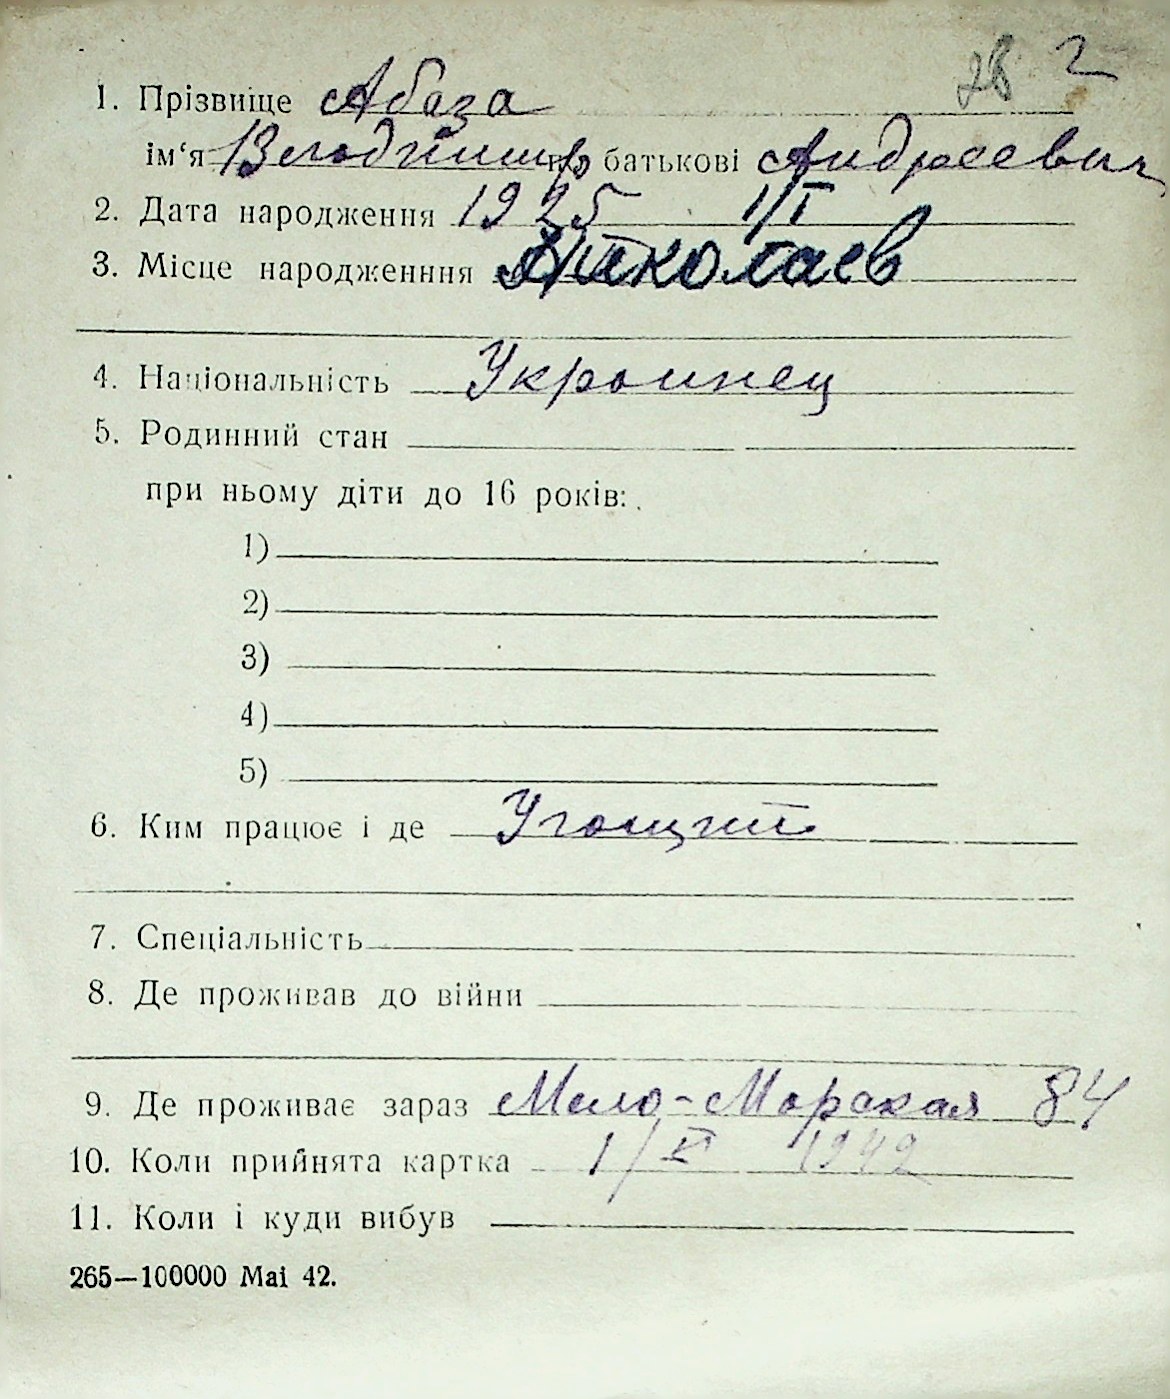 28 2
1. Прізвище Абаза
ім‘я Володимир по батькові Андреевич
2. Дата народження 1925 1/I
3. Місце народженння Николаев
4. Національність Украинец
5. Родинний стан
при ньому діти до 16 років:
1)
2)
3)
4)
5)
6. Ким працює і де Учащий
7. Спеціальність
8. Де проживав до війни
9. Де проживає зараз Мало-Морская 84
10. Коли прийнята картка 1/XI 1942
11. Коли і куди вибув
265—100000 Mai 42.